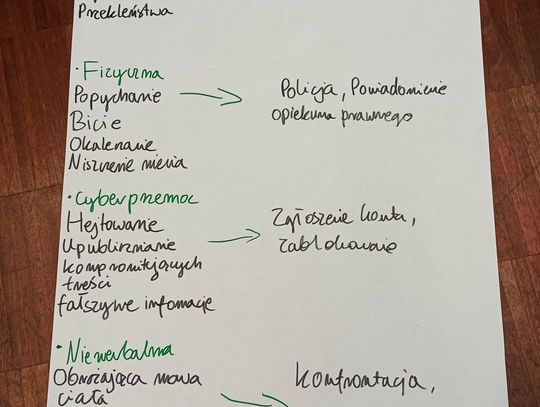 Przekleństwa
• Fizyczna
Popychanie
Bicie
Okaleczanie
Niszczenie mienia
Policja, Powiadomienie
opiekuna prawnego
• Cyberprzemoc
Hejtowanie
Upublicznianie
kompromitujących
treści
fałszywe infomacje
Zgłoszenie konta,
zablokowanie
• Niewerbalna
Obrażająca mowa
ciała
Konfrontacja,